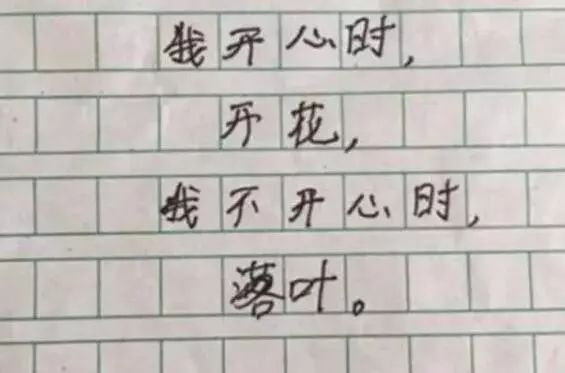 我开心时，
开花，
我不开心时，
落叶。